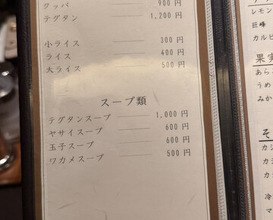 クッパ 900 円
テグタン 1,200 円
小ライス 300 円
ライス 400 円
大ライス 500 円
スープ類
テグタンスープ 1,000 円
ヤサイスープ 600 円
玉子スープ 600 円
ワカメスープ 500 円
レモン
巨峰
カルピ
果実
あら
うめ
みか
そ
カシ
カシ
カシ